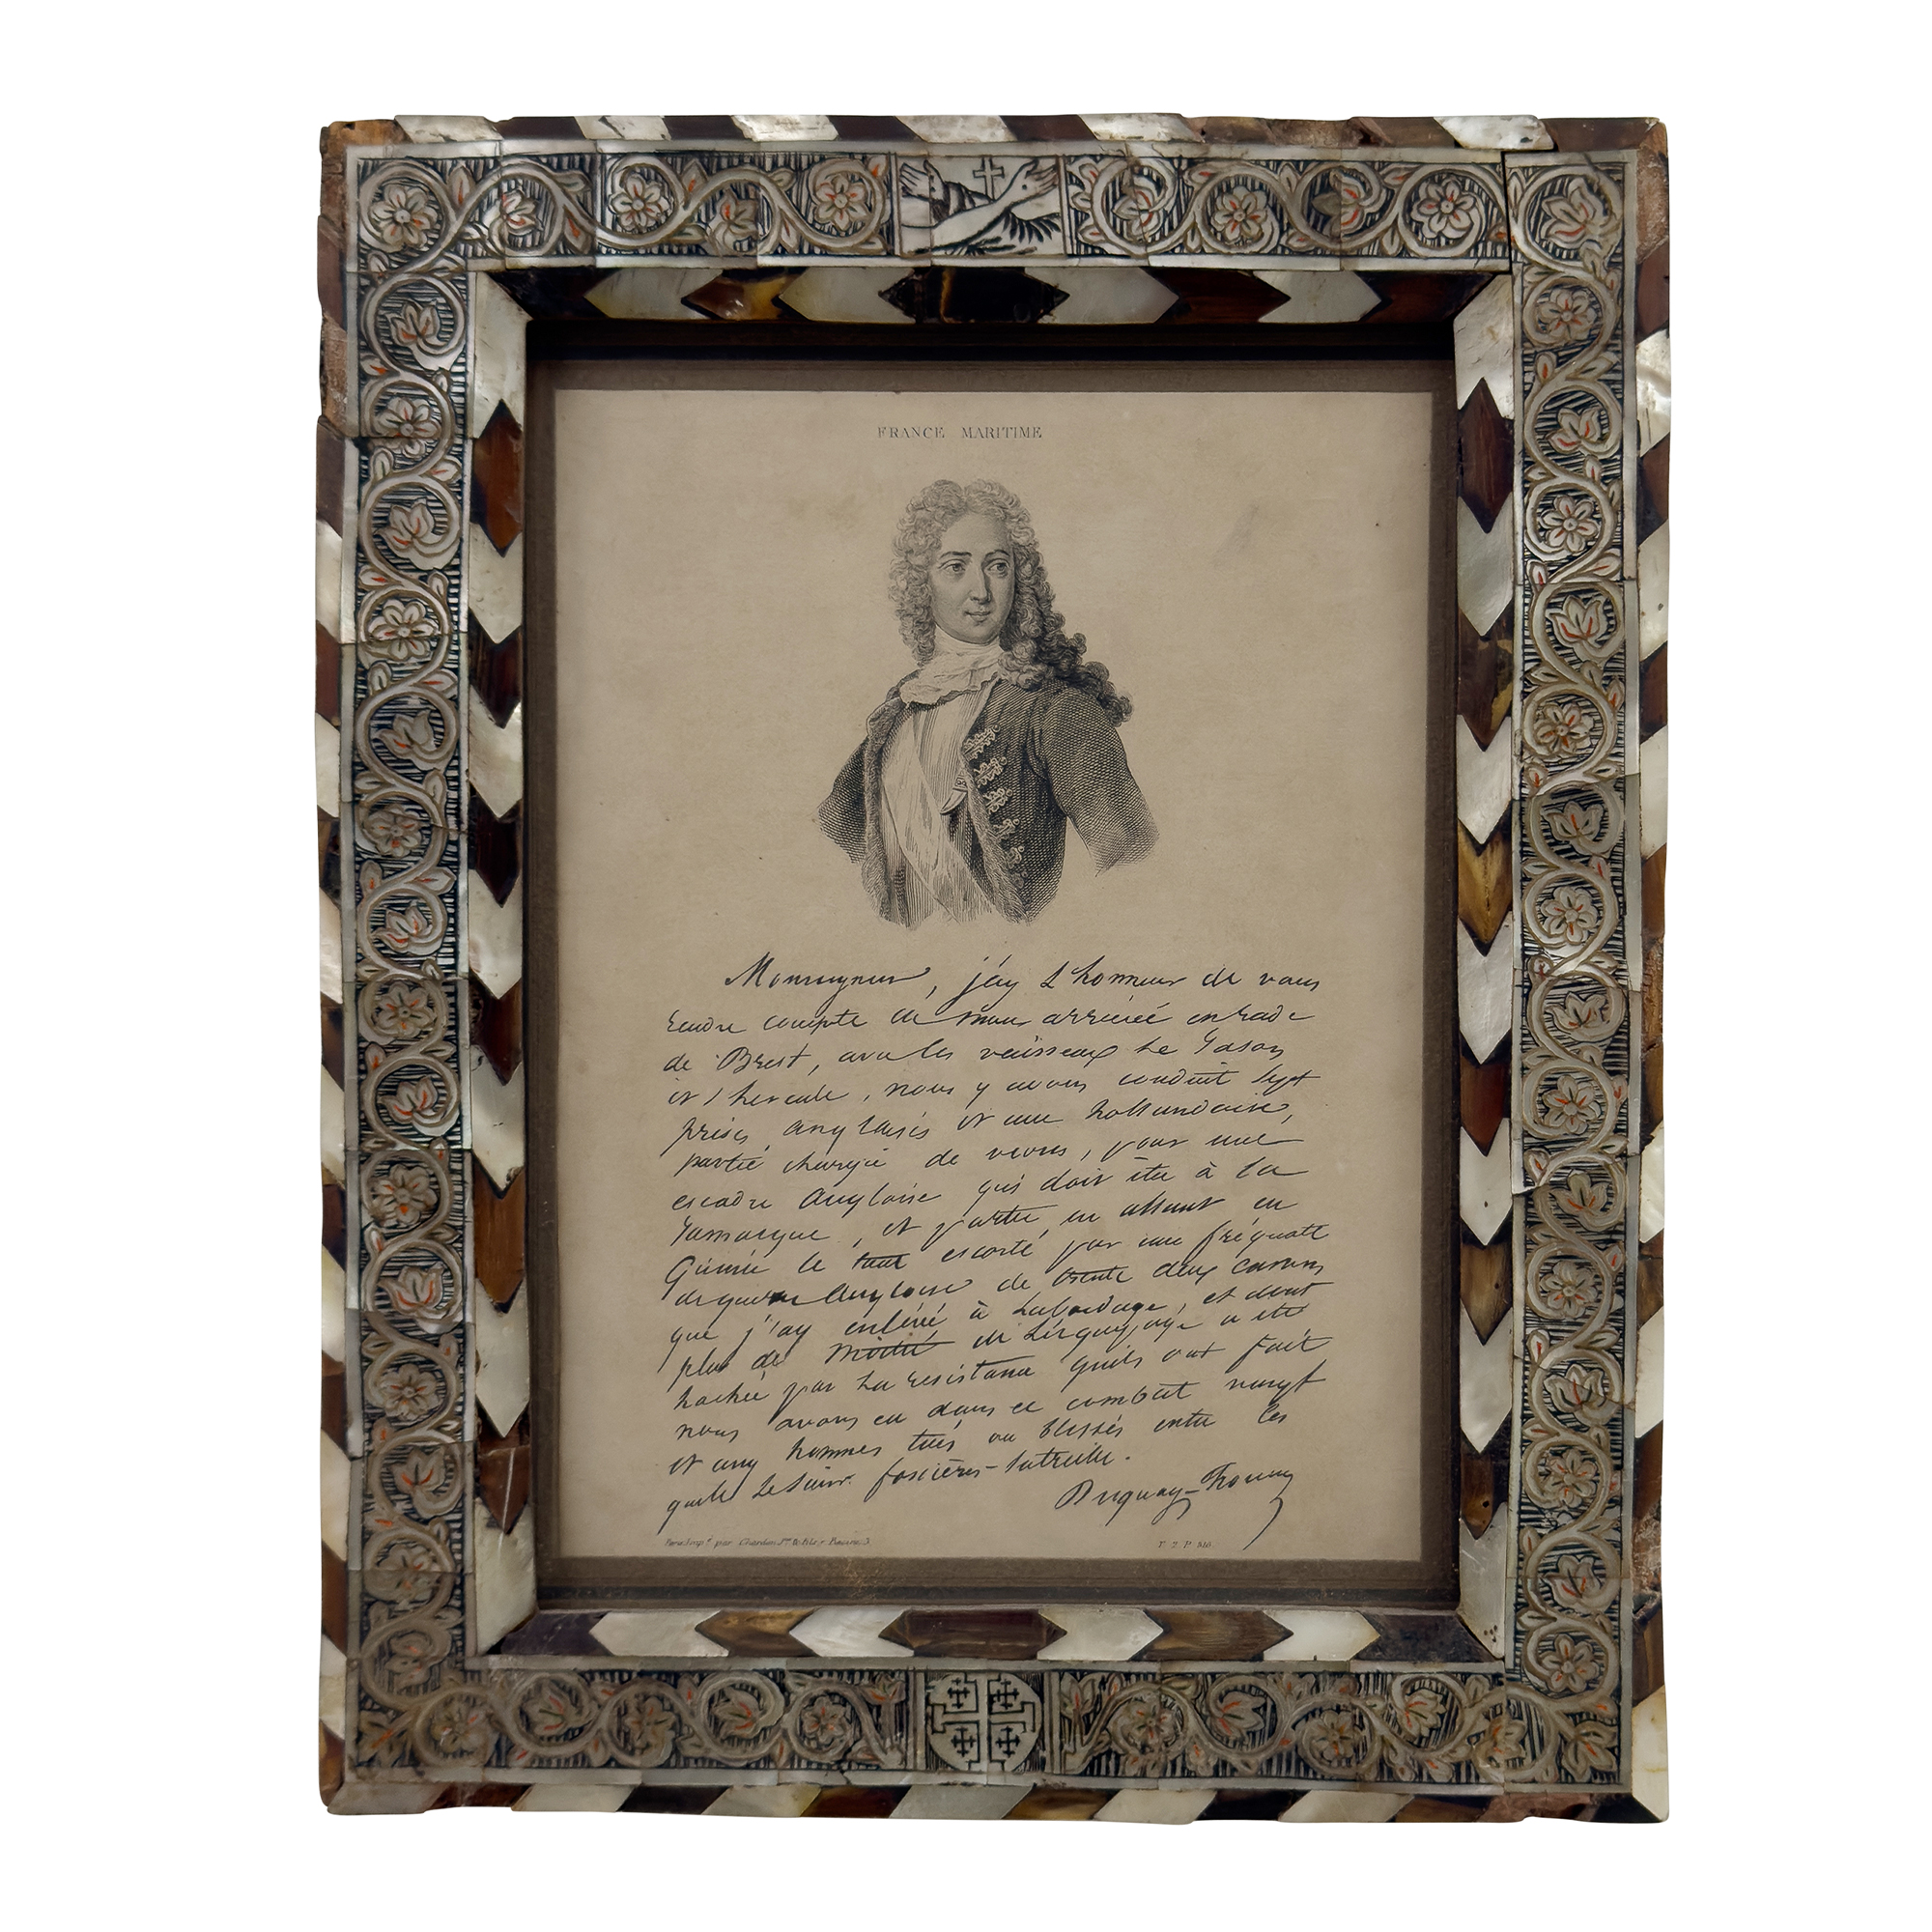 FRANCE MARITIME
Monseigneur, j'ay L'honneur de vous
rendre compte de mon arriveé en rade
de Brest, avec les vaisseaux Le Jason
et l'hercule, nous y avons conduit sept
prises anglaises et une hollandoise,
partie chargeé de vivres, pour une
escadre Angloise qui doit être à La
Jamaique, et partie en allant en
Guinée le tout escorté par une fréguatte
de guerre Angloise de trente deux canons
que j'ay enlevé à Labordage, et dont
plus de moitié de Léquipage a été
hachée par La resistance quils ont fait
nous avons eu dans ce combat vingt
et cinq hommes tués ou blessés entre les
quels Le Sieur
Duguay-Trouin
par Chardon Jne & fils r. Racine, 3